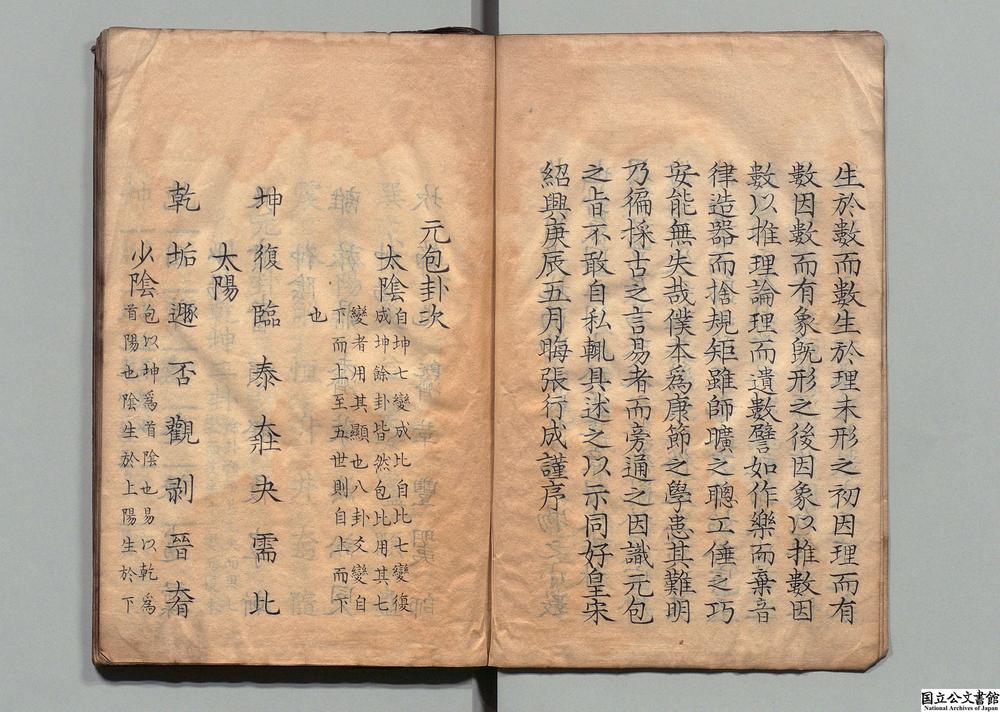 生於數而數生於理未形之初因理而有
數因數而有象既形之後因象以推數因
數以推理論理而遺數譬如作樂而棄音
律造器而捨規矩雖師曠之聰工倕之巧
安能無失哉僕本爲康節之學患其難明
乃徧採古之言易者而旁通之因識元包
之旨不敢自私輒具述之以示同好皇宋
紹興庚辰五月晦張行成謹序
元包卦次
太陰
自坤七變成比自比七變復
成坤餘卦皆然包比用其七
變者用其顯也八卦爻變自
下而上至五世則自上而下
也
坤復臨泰大壯夬需比
太陽
乾姤遯否觀剥晉大有
少陰
包以坤爲首陰也易以乾爲
首陽也陰生於上陽生於下
国立公文書館
National Archives of Japan